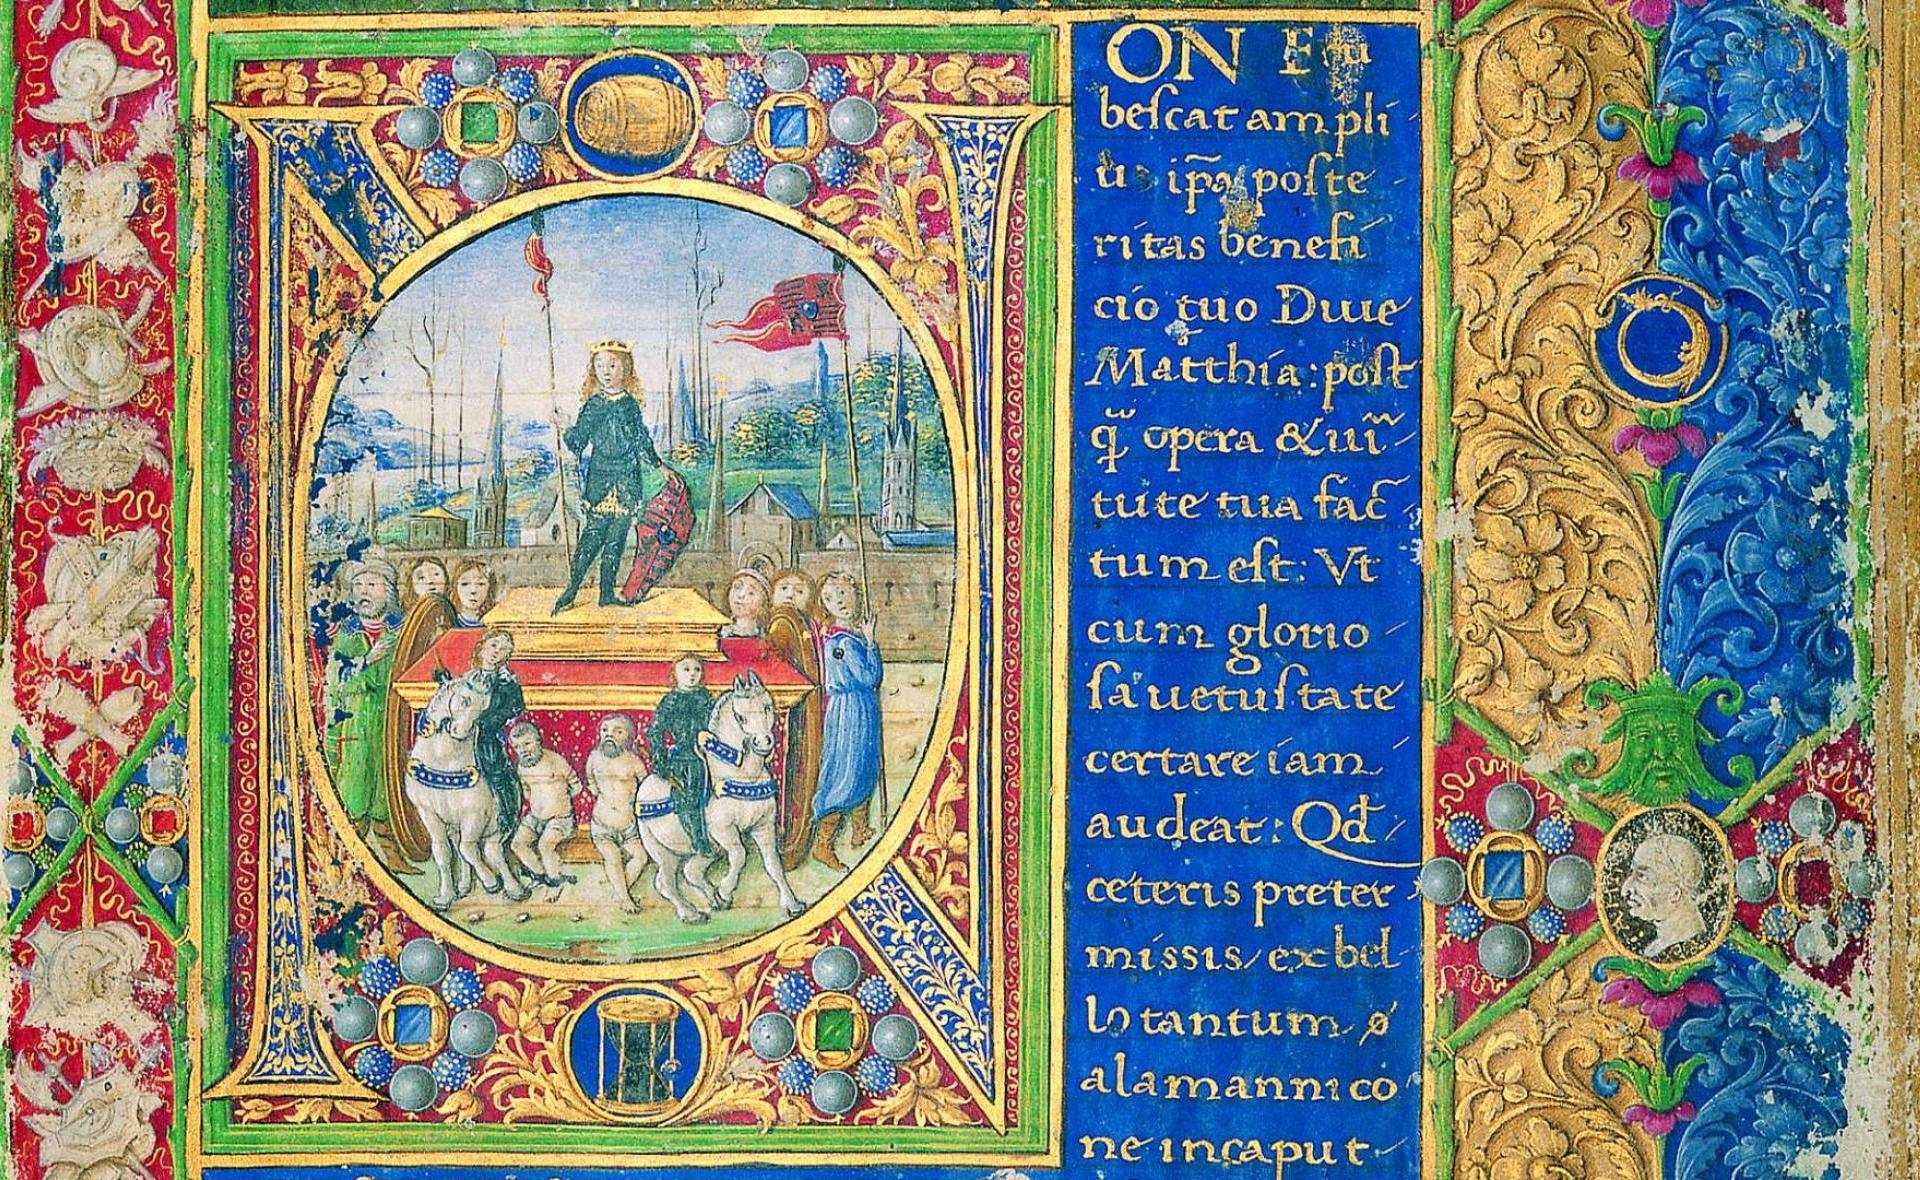 NON
beſcat ampli
ip̃a poſte
ritas benefi
cio tuo Diue
Matthia: poſt
q̈̃ opera & uir̃
tute tua fac̃
tum eſt: Vt
cum glorio
ſa uetuſtate
certare iam
audeat: Qd̃
ceteris preter
missis, ex bel
lo tantum ø
alamannico
ne in caput